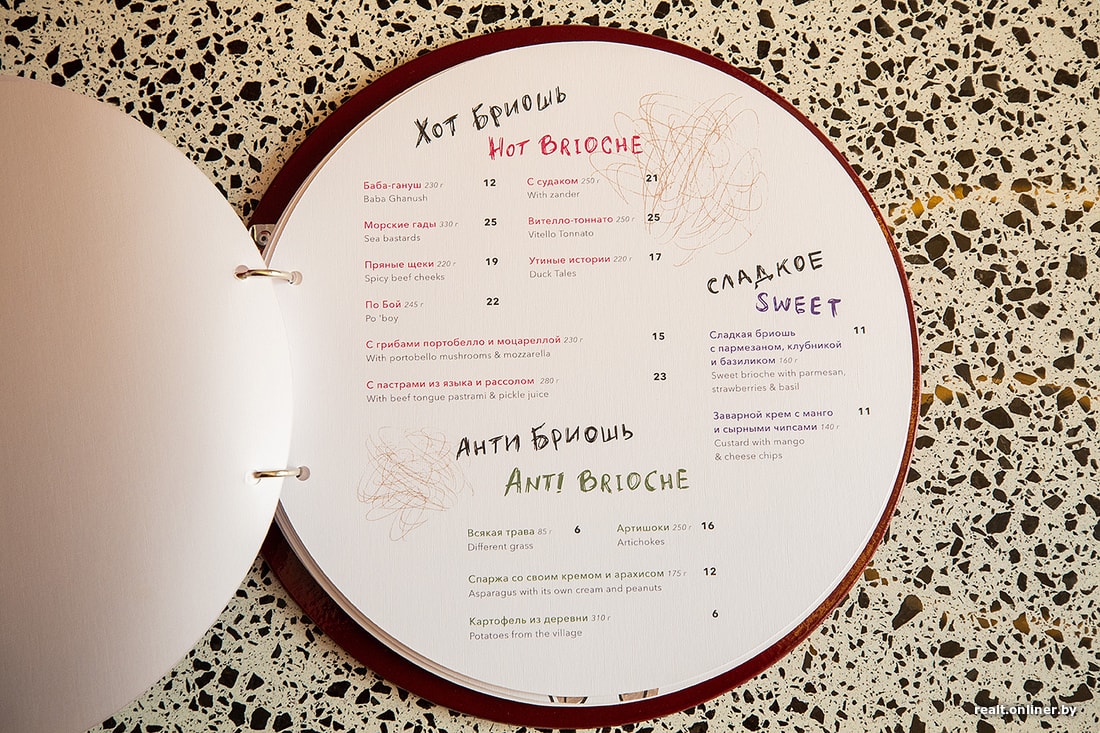 Хот Бриошь
Hot Brioche
Баба-гануш 230 г 12
Baba Ghanush
С судаком 250 г 21
With zander
Морские гады 330 г 25
Sea bastards
Вителло-тоннато 250 г 25
Vitello Tonnato
Пряные щеки 220 г 19
Spicy beef cheeks
Утиные истории 220 г 17
Duck Tales
По Бой 245 г 22
Po 'boy
С грибами портобелло и моцареллой 230 г 15
With portobello mushrooms & mozzarella
С пастрами из языка и рассолом 280 г 23
With beef tongue pastrami & pickle juice
Сладкое
Sweet
Сладкая бриошь 11
с пармезаном, клубникой
и базиликом 160 г
Sweet brioche with parmesan,
strawberries & basil
Заварной крем с манго 11
и сырными чипсами 140 г
Custard with mango
& cheese chips
Анти Бриошь
Anti Brioche
Всякая трава 85 г 6
Different grass
Артишоки 250 г 16
Artichokes
Спаржа со своим кремом и арахисом 175 г 12
Asparagus with its own cream and peanuts
Картофель из деревни 310 г 6
Potatoes from the village
realt.onliner.by